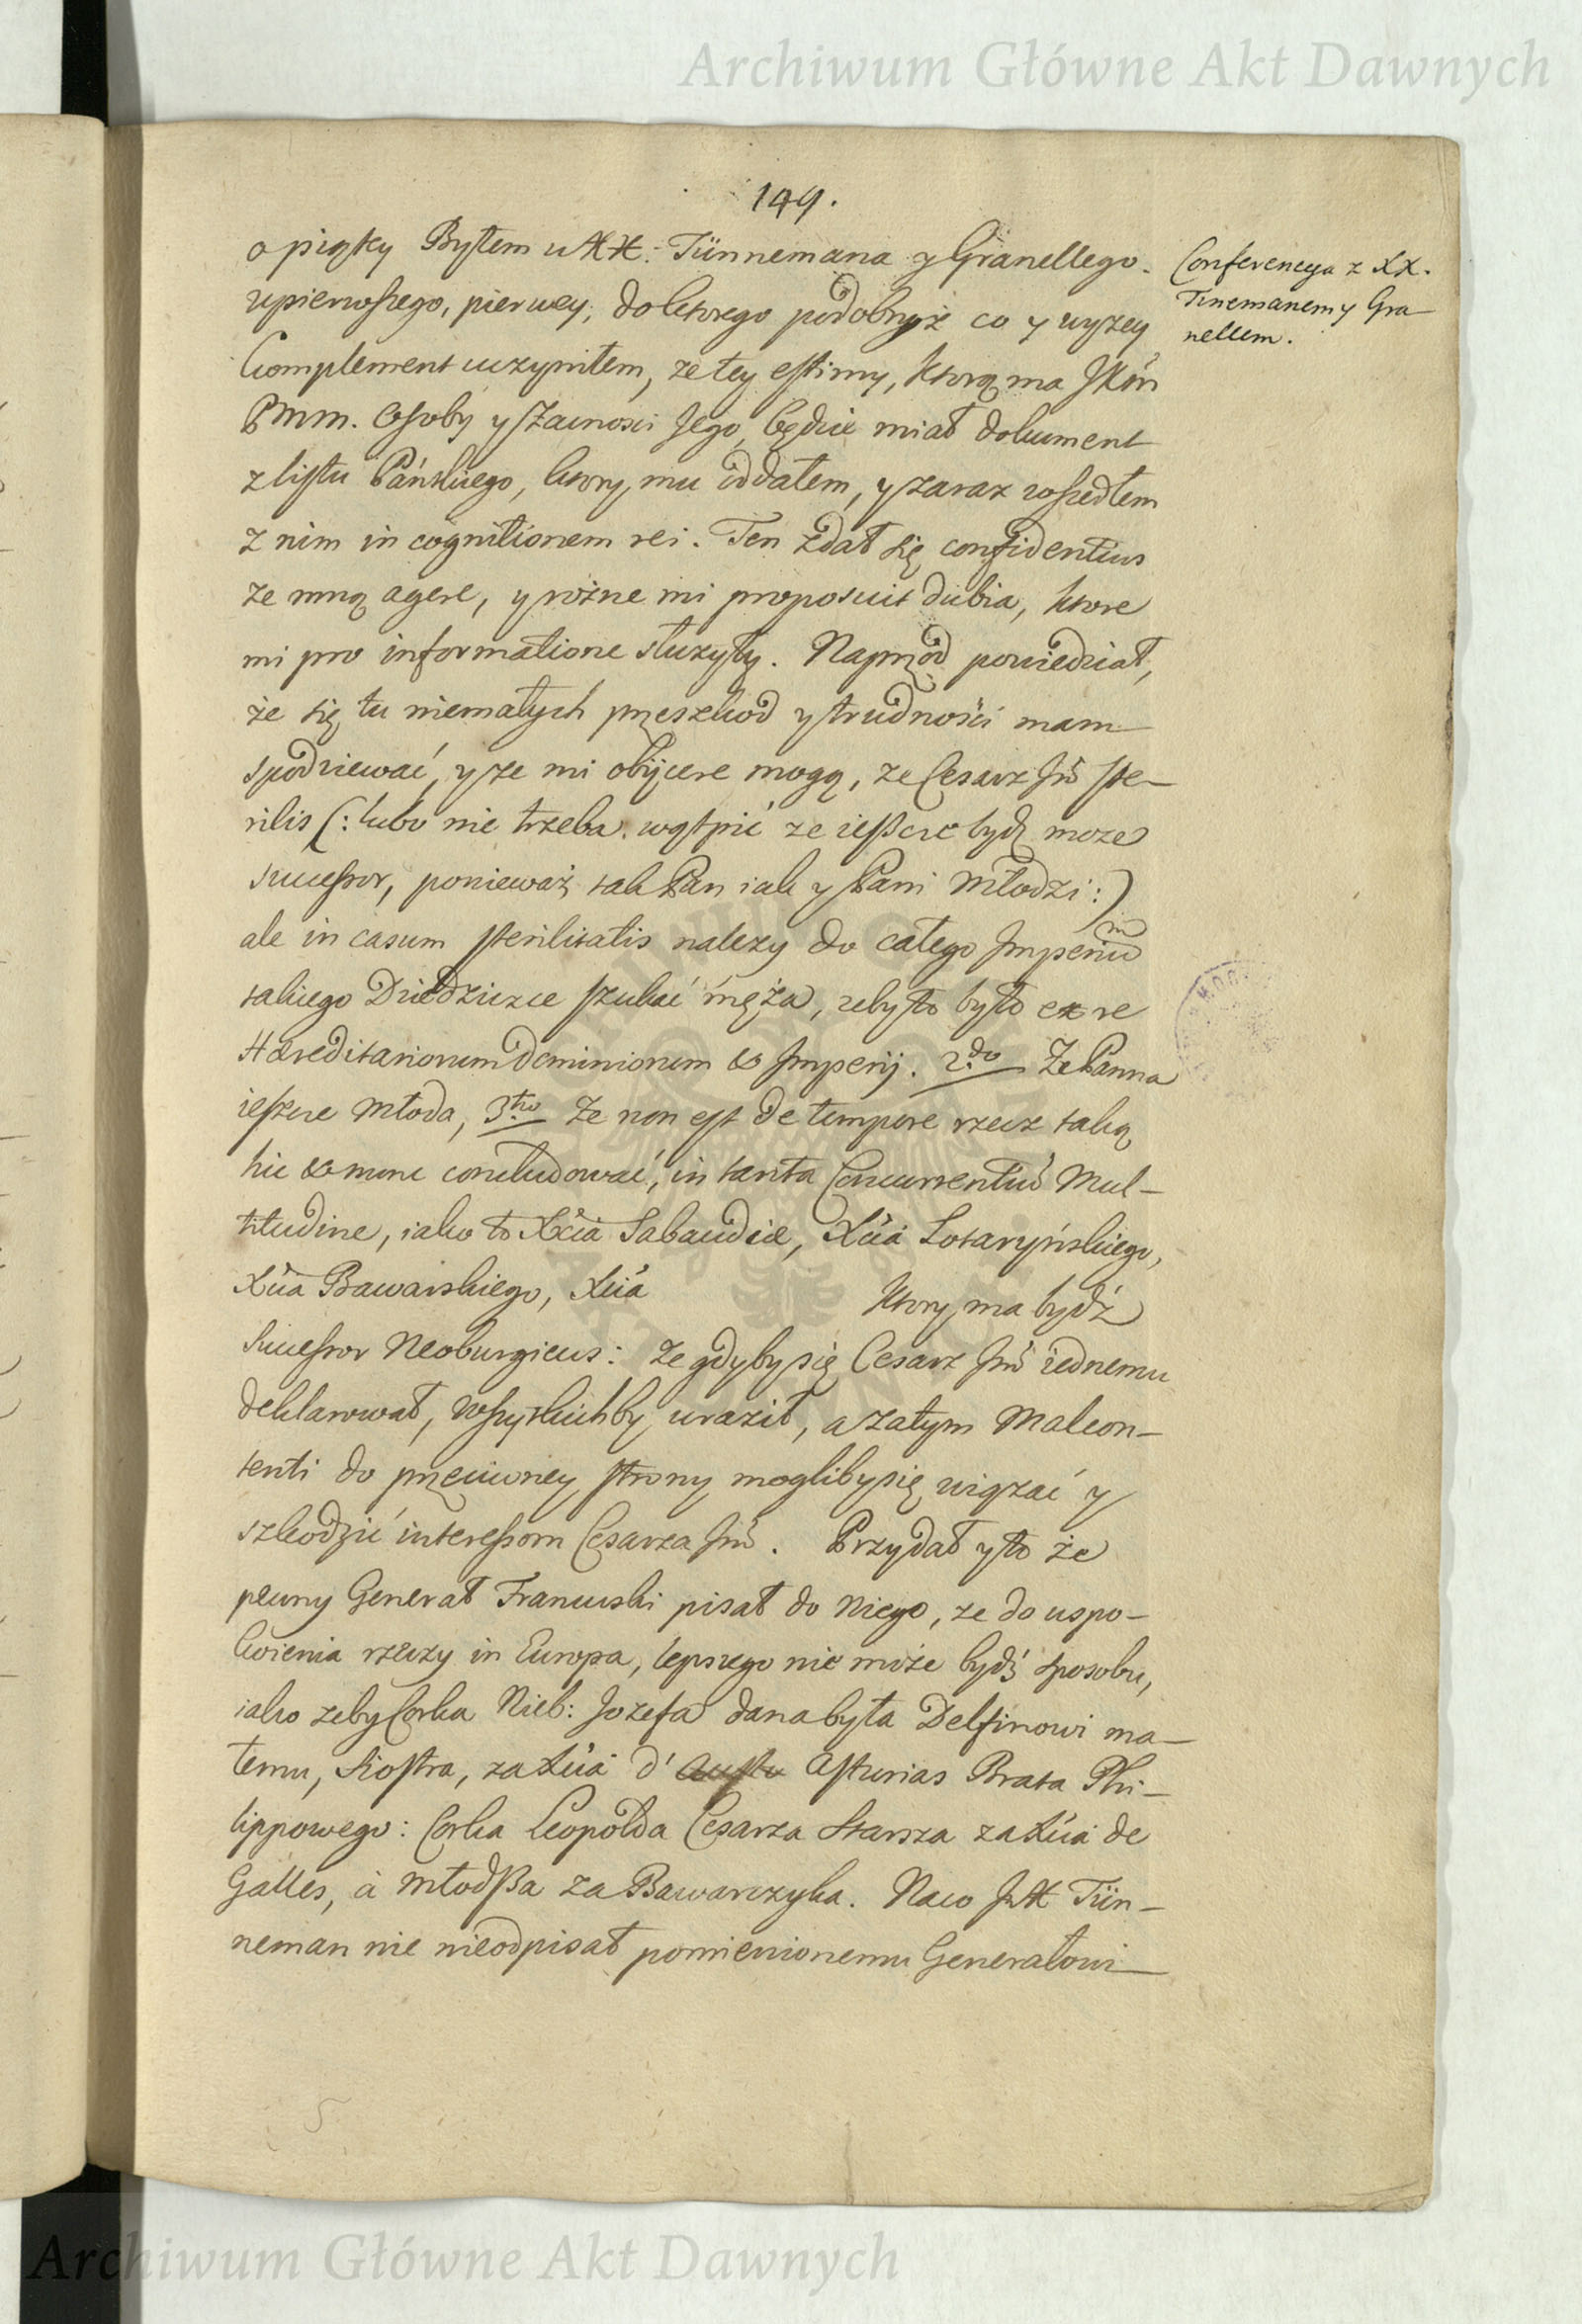 Archiwum Główne Akt Dawnych
149.
o piątey Byłem u XX: Tünnemana y Granellego.
upierwszego, pierwey, do ktorego podobnyż co y wyzey
Complement uczyniłem, ze tey estimy, ktorą ma JKM
PMM. Osoby y szacnosci Jego, będzie miał dokument
z listu Pańskiego, ktory mu oddałem, y zaraz wszedłem
z nim in cognitionem rei. Ten zdał się confidentius
ze mną agere, y rożne mi proposuit dubia, ktore
mi pro informatione służyły. Naprzod powiedział,
że się tu niemałych przeszkod y trudności mam
spodziewać, y ze mi obijcere mogą, ze Cesarz Jmć ste-
rilis (: lubo nie trzeba wątpić ze ieszcze bydź moze
successor, ponieważ tak Pan iak y Pani Młodzi :)
ale in casum sterilitatis nalezy do całego Imperium
takiego Dziedziczce szukać męża, zeby to było ex re
Hæreditariorum Dominiorum & Imperij. 2do Ze Panna
ieszcze Młoda, 3tio Ze non est de tempore rzecz taką
hic & nunc concludować, in tanta Concurrentium Mul-
titudine, iako to Xcia Sabaudiæ, Xcia Lotaryńskiego,
Xcia Bawarskiego, Xcia ktory ma bydź
Successor Neoburgicus: Ze gdyby się Cesarz Jmć iednemu
deklarował, wszystkichby uraził, a zatym Malcon-
tenti do przeciwney strony moglibysię wiązać y
szkodzić interessom Cesarza Jmć. Przydał y to że
pewny Generał Francuski pisał do Niego, ze do uspo-
koienia rzeczy in Europa, lepszego nie może bydź sposobu,
iako zeby Corka Nieb: Jozefa dana była Delfinowi ma-
łemu, Siostra, za Xcia d' Asturias Brata Phi-
lippowego: Corka Leopolda Cesarza Starsza za Xcia de
Galles, à młodsza za Bawarczyka. Naco JX Tün-
neman nie nieodpisał pomienionemu Generałowi
Conferencya z XX.
Tinemanem y Gra-
nellem.
Archiwum Główne Akt Dawnych